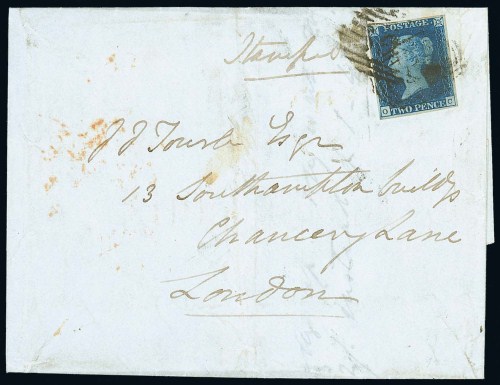 POSTAGE
TWO PENCE
O C
Stamped
J J Tourle Esqr
13 Southampton buildgs
Chancery Lane
London